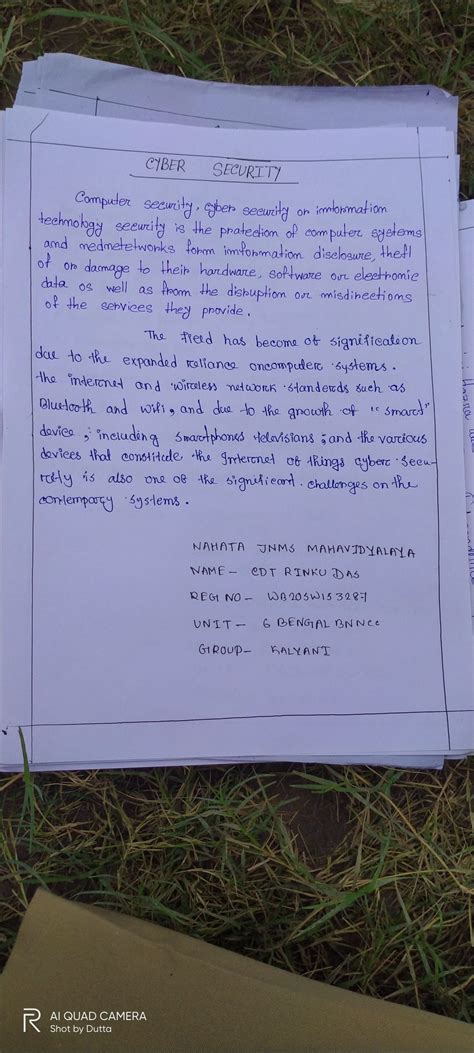 CYBER SECURITY
Computer security, cyber security or imformation
technology security is the protection of computer systems
and mednetetworks form imformation disclosure, theft
of or damage to their hardware, software or electronic
data os well as from the disruption or misdirections
of the services they provide.
The field has become of significateon
due to the expanded reliance oncomputer systems.
the internet and wireless network standerds such as
Bluetooth and wifi, and due to the growth of "smart"
device, including smartphones televisians, and the various
devices that constitude the Internet of things cyber secu-
rety is also one of the significant. challenges on the
contemporcy systems.
NAHATA JNMS MAHAVIDYALAYA
NAME- CDT RINKU DAS
REGI NO- WB20SW153287
UNIT- 6 BENGAL BNNCC
GROUP- KALYANI
AI QUAD CAMERA
Shot by Dutta